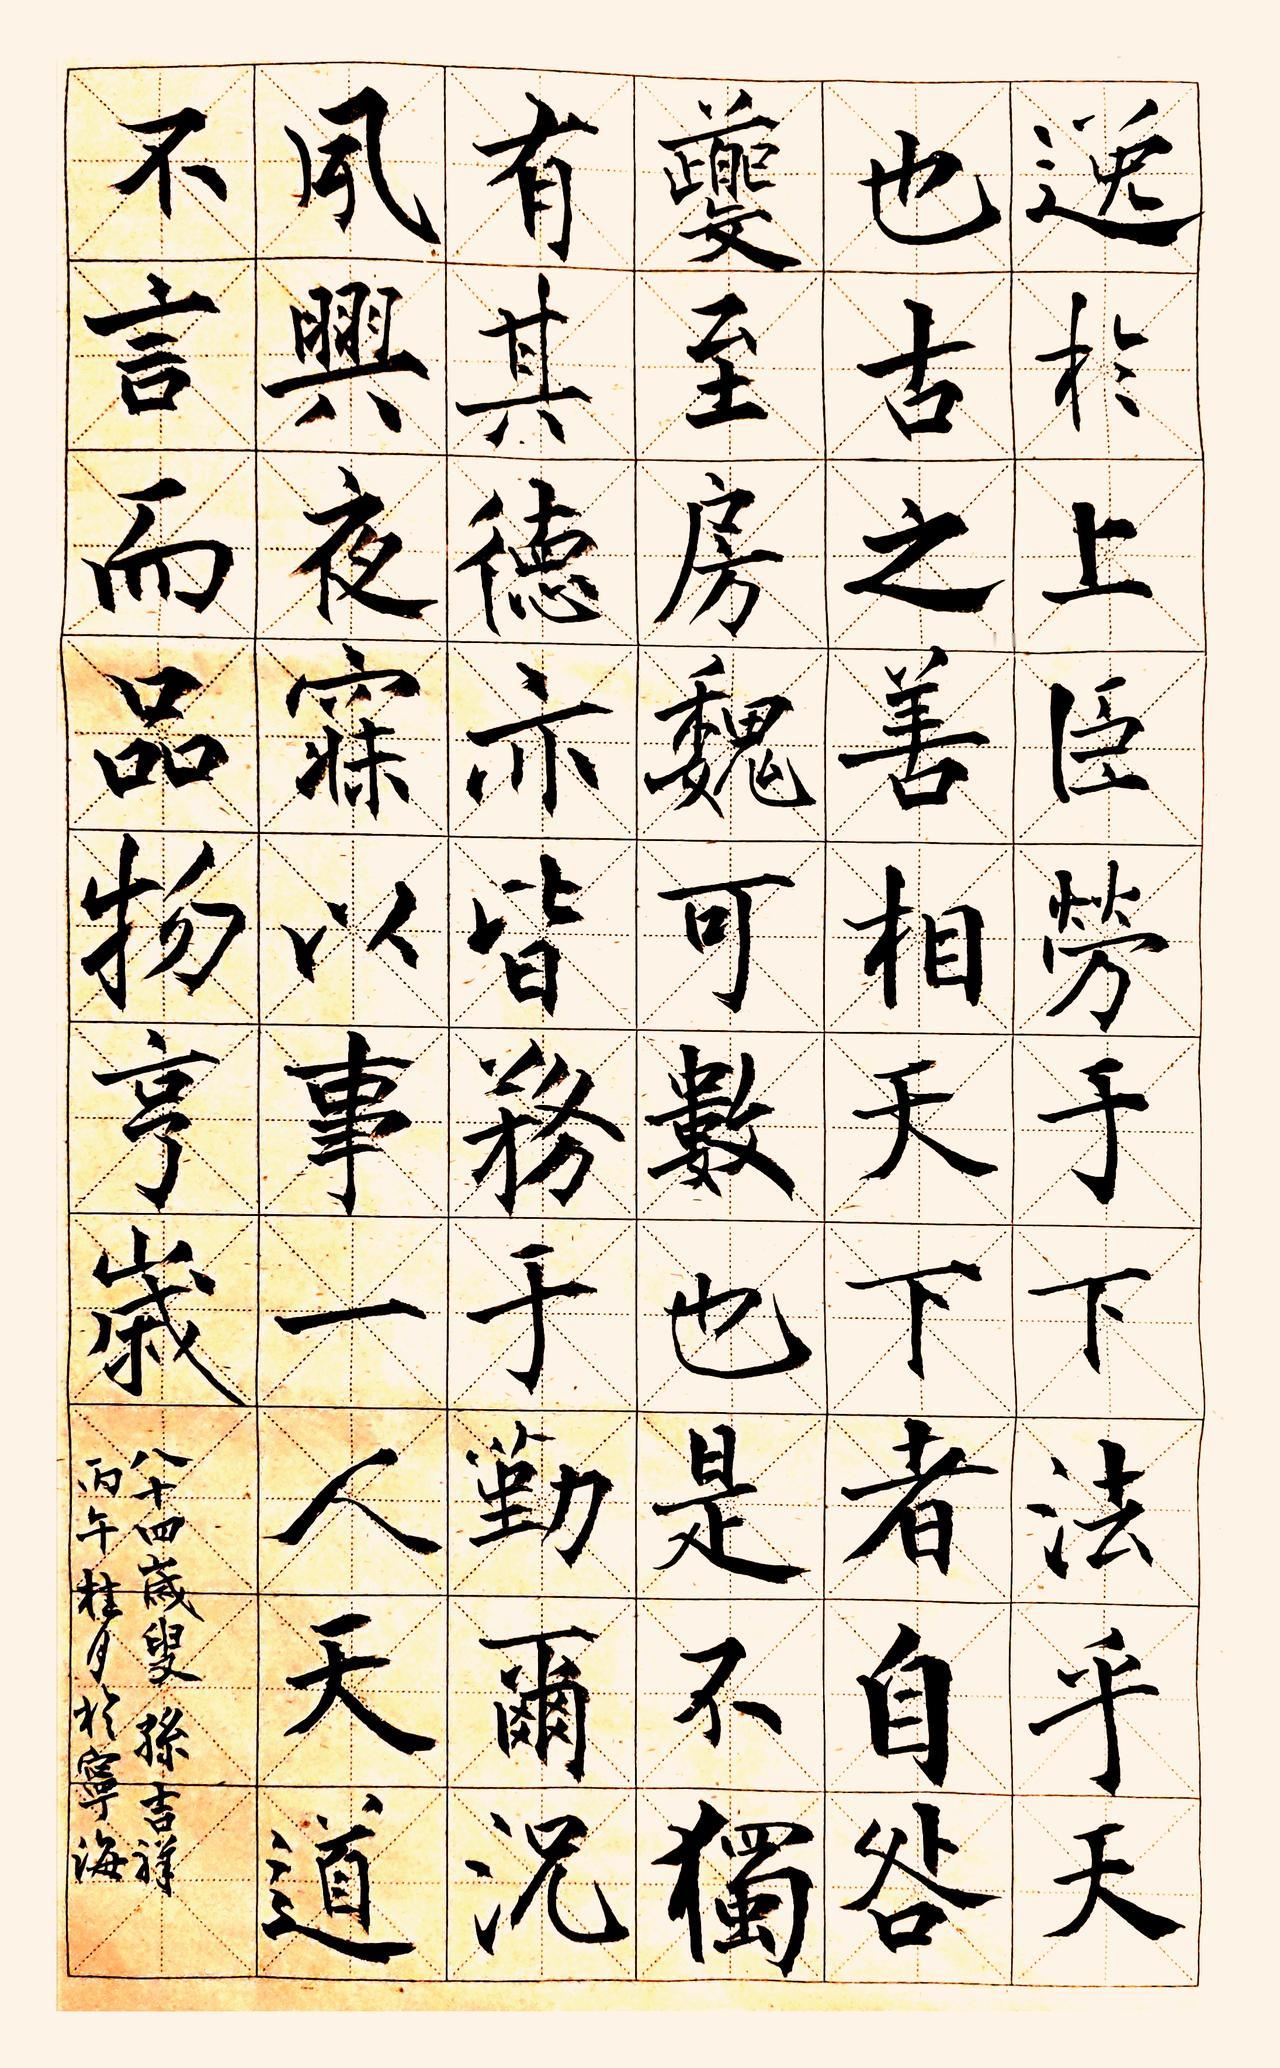 逸於上臣勞于下法乎天
也古之善相天下者自咎
夔至房魏可數也是不獨
有其德亦皆務于勤爾況
夙興夜寐以事一人天道
不言而品物亨歲
八十四歲叟孫吉祥
丙午桂月於寧海